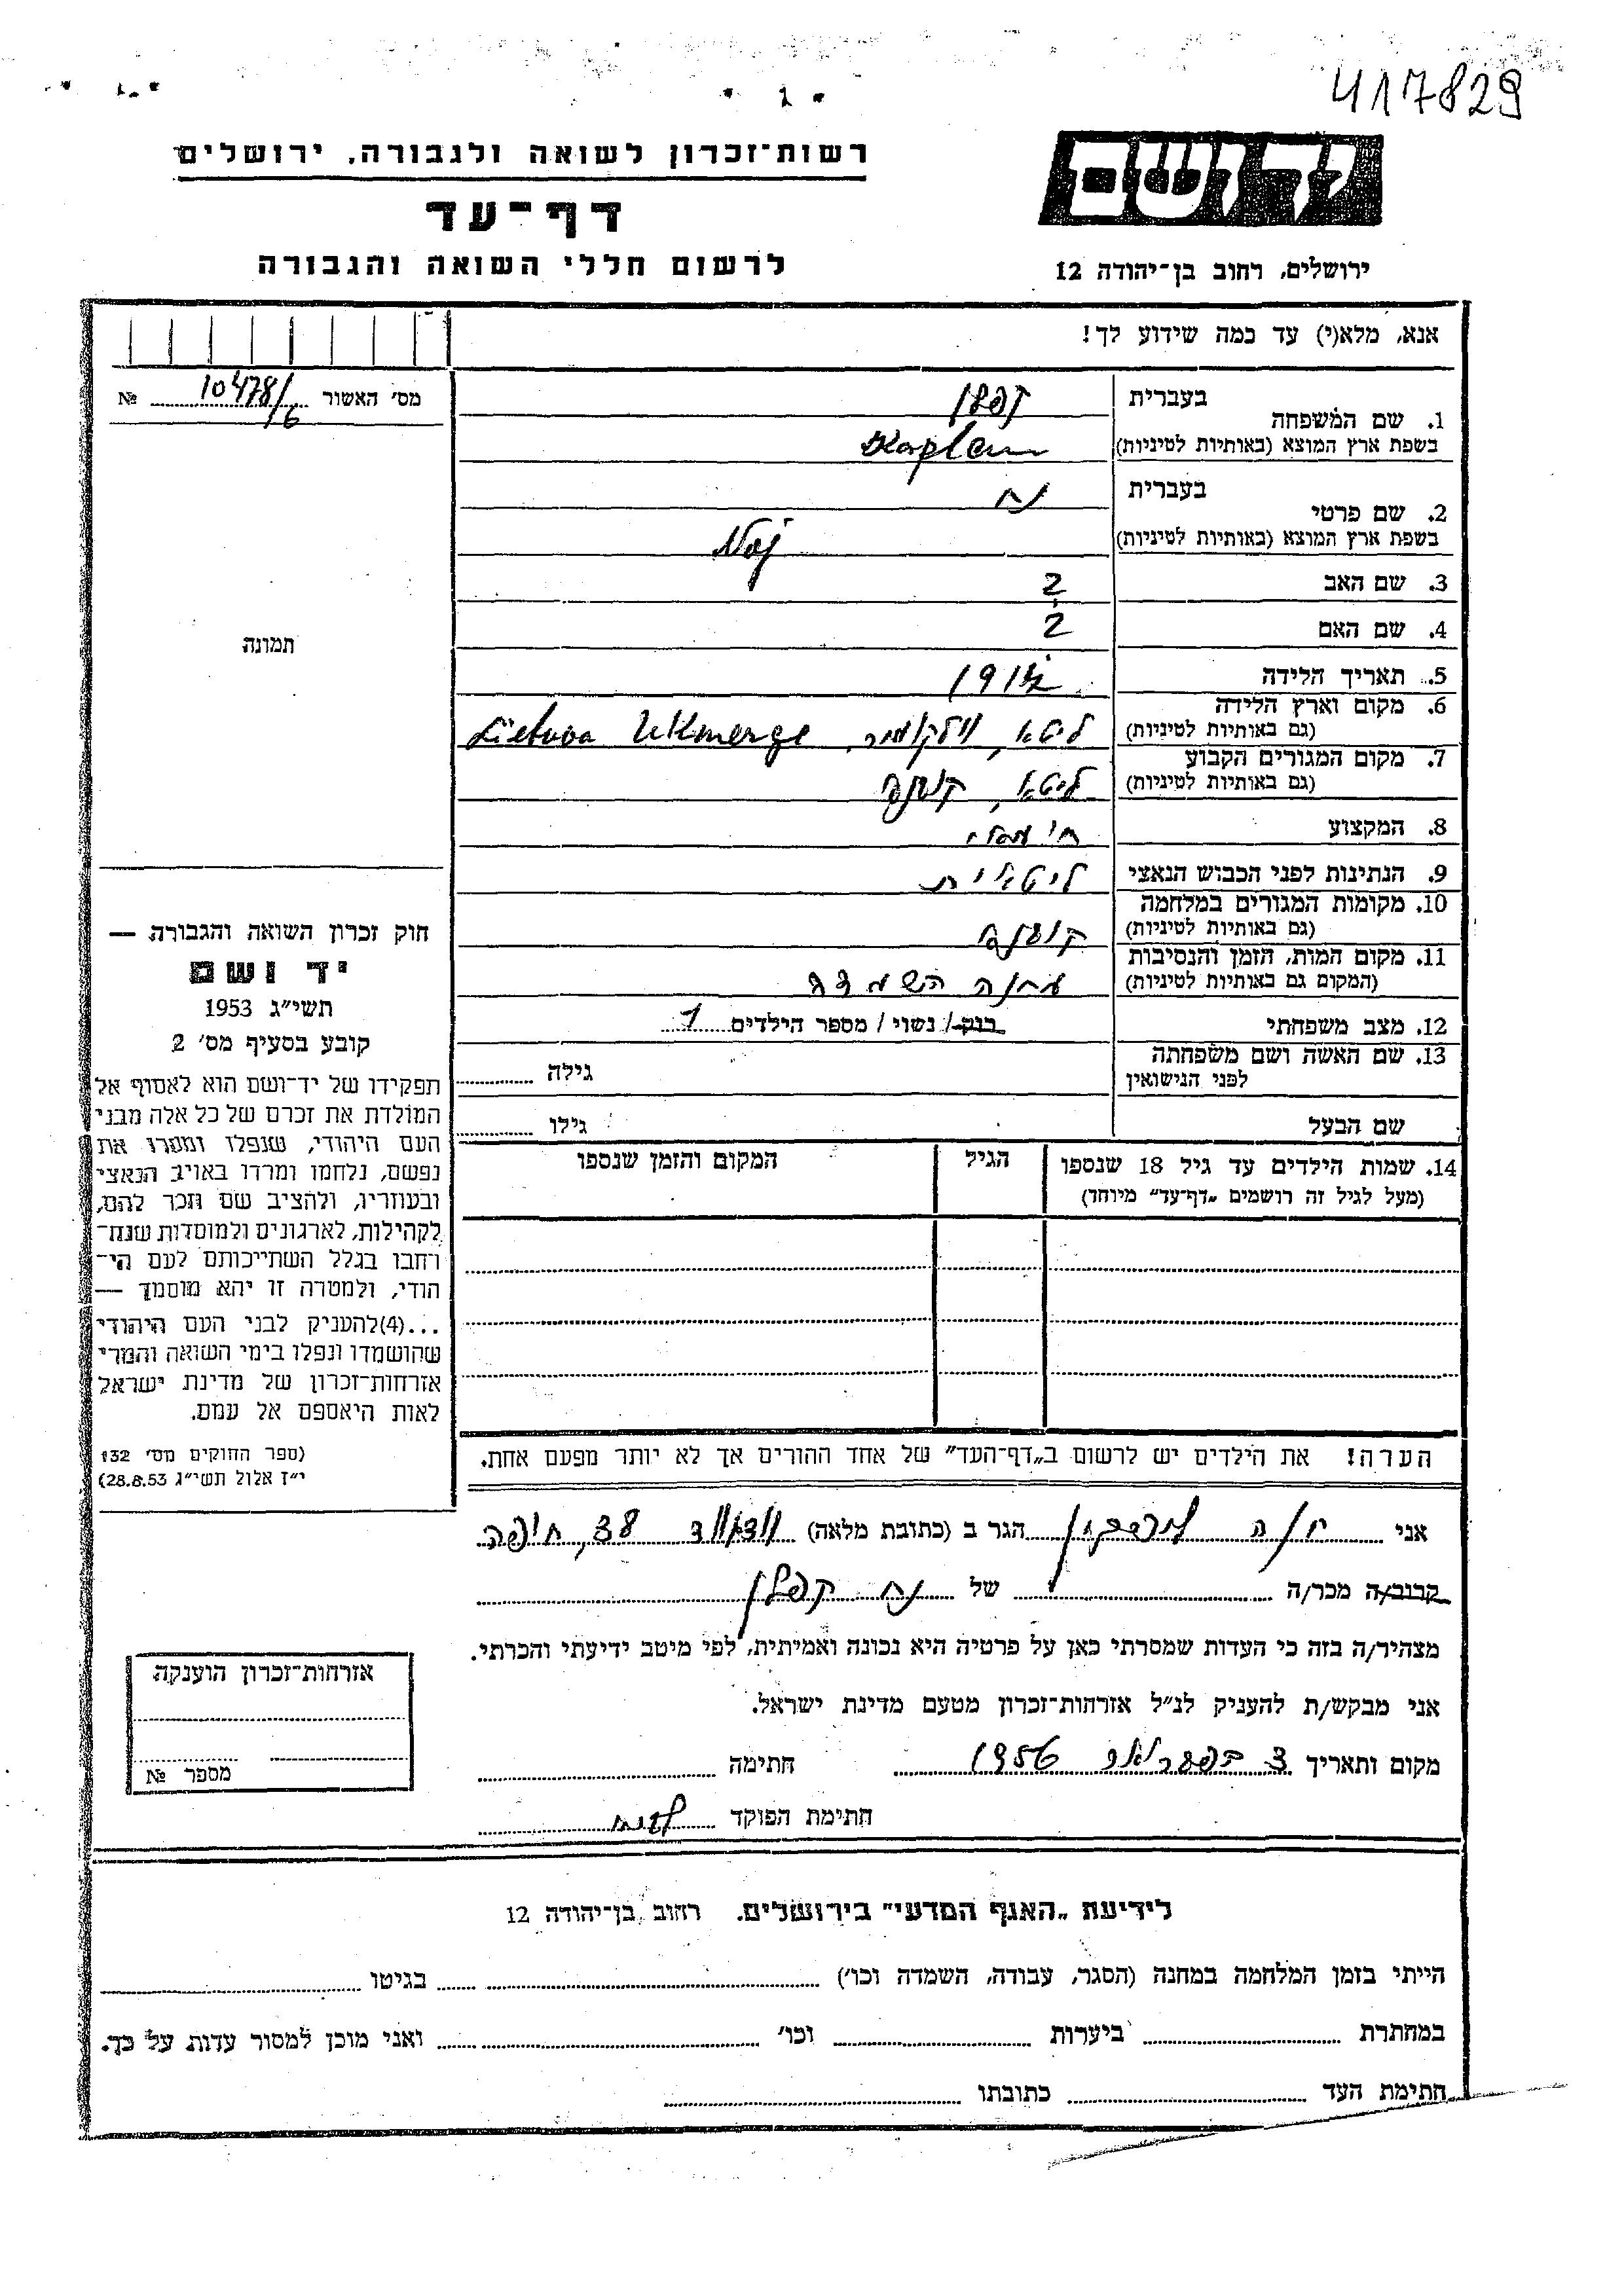 417829
יד ושם
רשות־זכרון לשואה ולגבורה, ירושלים
דף־עד
לרשום חללי השואה והגבורה
ירושלים, רחוב בן־יהודה 12
אנא, מלא(י) עד כמה שידוע לך!
מס' האשור 10478/6 №
תמונה
1. שם המשפחה
בעברית קפלן
בשפת ארץ המוצא (באותיות לטיניות) Kaplan
2. שם פרטי
בעברית נח
בשפת ארץ המוצא (באותיות לטיניות)
3. שם האב ?
4. שם האם ?
5. תאריך הלידה
6. מקום וארץ הלידה
(גם באותיות לטיניות) ליטא, וילקומיר, Lietuva Ukmerge
7. מקום המגורים הקבוע
(גם באותיות לטיניות) ליטא, קובנה
8. המקצוע
9. הנתינות לפני הכבוש הנאצי ליטאית
10. מקומות המגורים במלחמה
(גם באותיות לטיניות) קובנה
11. מקום המות, הזמן והנסיבות
(המקום גם באותיות לטיניות) מחנה השמדה
12. מצב משפחתי רוק/ נשוי / מספר הילדים 1
13. שם האשה ושם משפחתה
לפני הנישואין גילה
שם הבעל גילו
14. שמות הילדים עד גיל 18 שנספו הגיל המקום והזמן שנספו
(מעל לגיל זה רושמים „דף־עד" מיוחד)
הערה! את הילדים יש לרשום ב„דף־העד" של אחד ההורים אך לא יותר מפעם אחת.
חוק זכרון השואה והגבורה —
יד ושם
תשי"ג 1953
קובע בסעיף מס' 2
תפקידו של יד־ושם הוא לאסוף אל
המולדת את זכרם של כל אלה מבני
העם היהודי, שנפלו ומסרו את
נפשם, נלחמו ומרדו באויב הנאצי
ובעוזריו, ולהציב שם וזכר להם,
לקהילות, לארגונים ולמוסדות שנח־
רחבו בגלל השתייכותם לעם הי־
הודי, ולמטרה זו יהא מוסמך —
...(4)להעניק לבני העם היהודי
שהושמדו ונפלו בימי השואה והמרי
אזרחות־זכרון של מדינת ישראל
לאות היאספם אל עמם.
(ספר החוקים מס' 132
י"ז אלול תשי"ג 28.8.53)
אני הגר ב (כתובת מלאה) 38, חיפה
קרוב/ה מכר/ה של נח קפלן
מצהיר/ה בזה כי העדות שמסרתי כאן על פרטיה היא נכונה ואמיתית, לפי מיטב ידיעתי והכרתי.
אני מבקש/ת להעניק לנ"ל אזרחות־זכרון מטעם מדינת ישראל.
מקום ותאריך 3 בפברואר 1956 חתימה
חתימת הפוקד
אזרחות־זכרון הוענקה
מספר №
לידיעת „האגף המדעי" בירושלים. רחוב בן־יהודה 12
הייתי בזמן המלחמה במחנה (הסגר, עבודה, השמדה וכו') בגיטו
במחתרת ביערות וכו' ואני מוכן למסור עדות על כך.
חתימת העד כתובתו